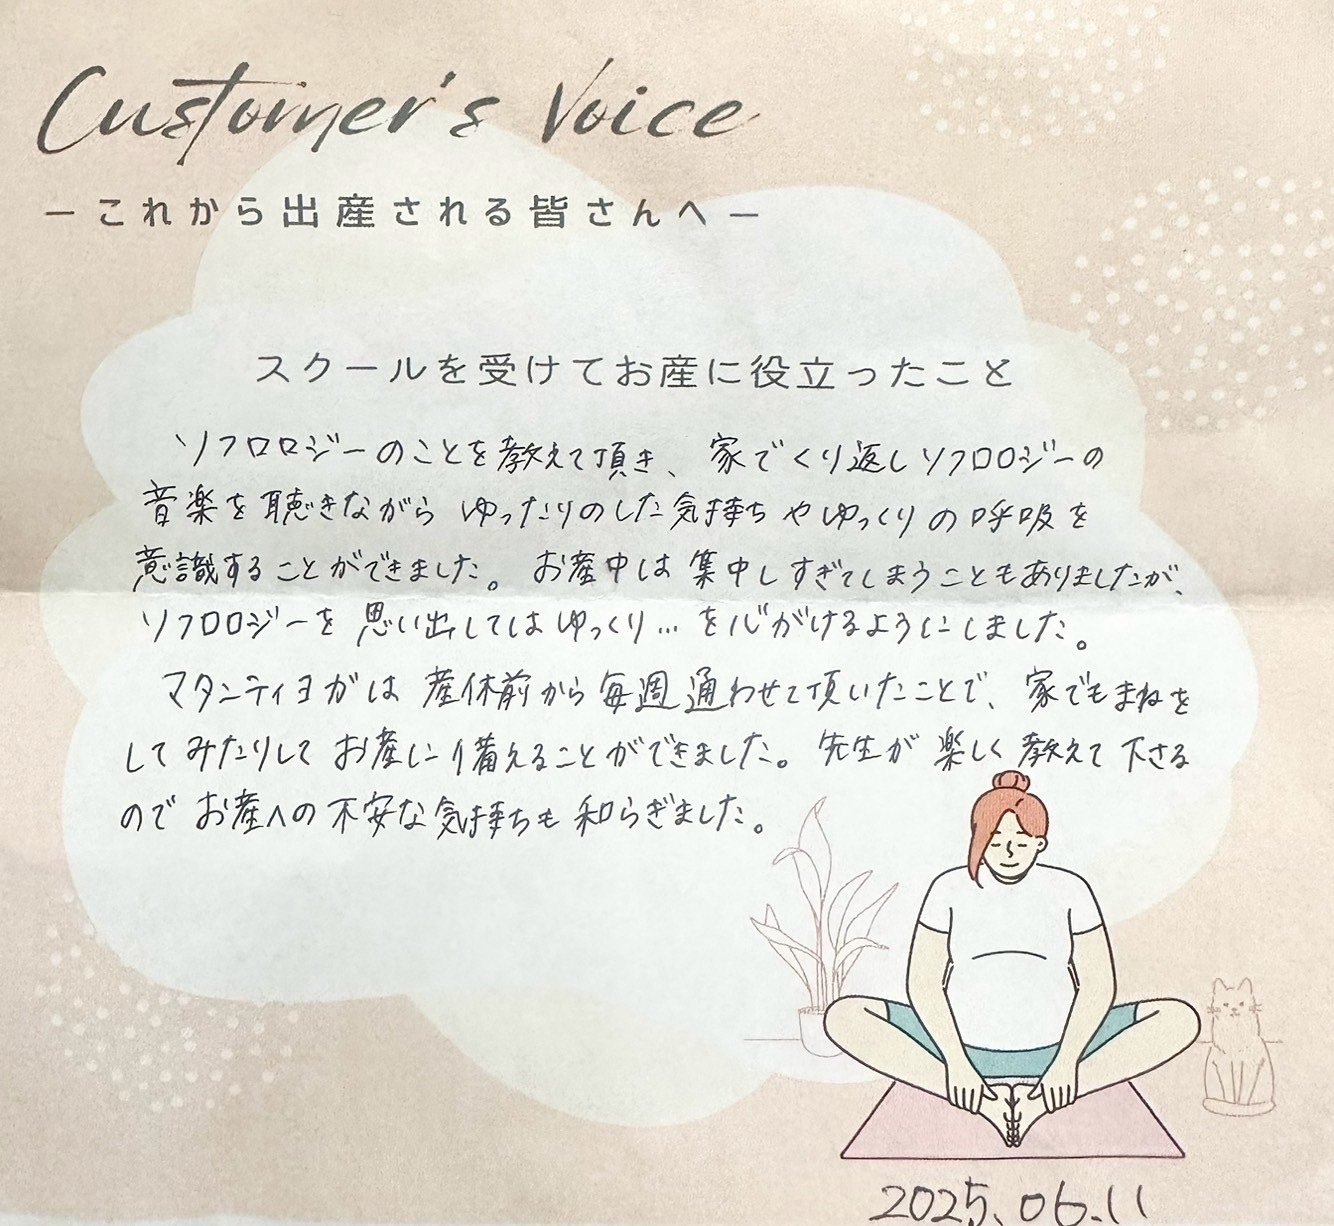 Customer's Voice
ーこれから出産される皆さんへー
スクールを受けてお産に役立ったこと
ソフロロジーのことを教えて頂き、家でくり返しソフロロジーの
音楽を聴きながらゆったりのした気持ちやゆっくりの呼吸を
意識することができました。お産中は集中しすぎてしまうこともありましたが、
ソフロロジーを思い出してはゆっくり…を心がけるようにしました。
マタニティヨガは産休前から毎週通わせて頂いたことで、家でもまねを
してみたりしてお産に備えることができました。先生が楽しく教えて下さる
のでお産への不安な気持ちも和らぎました。
2025.06.11